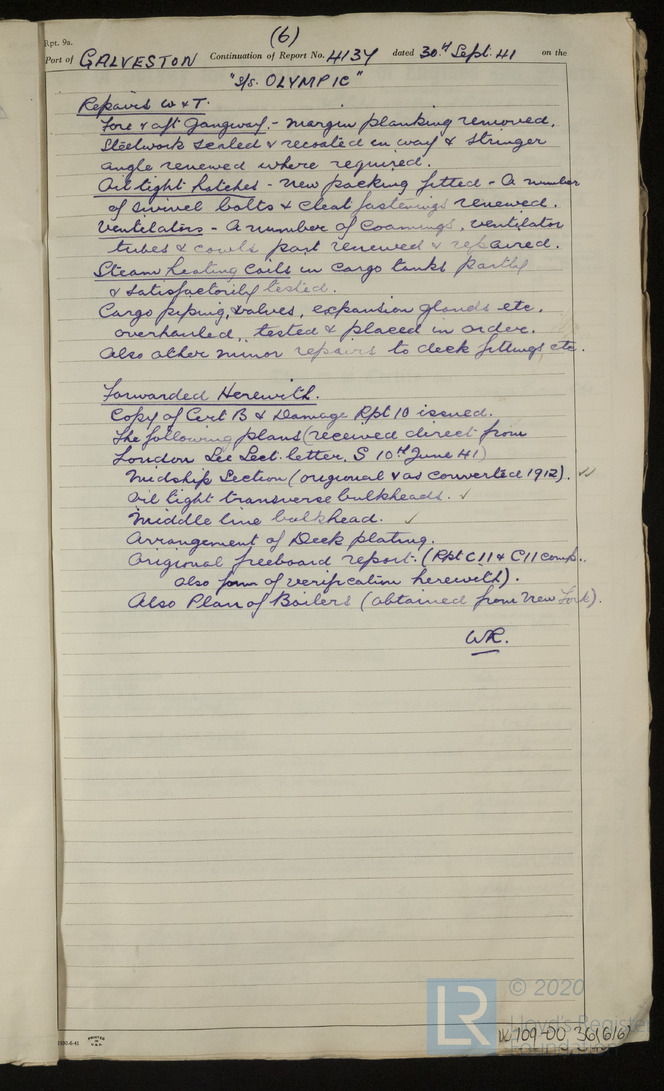 (6)
Rpt. 9a.
Port of GALVESTON Continuation of Report No. 4134 dated 30th Sept. 41 on the
"S/S. OLYMPIC"
Repairs W & T.
Fore & aft Gangway. - Margin planking removed.
Steelwork scaled & recoated in way & stringer
angle renewed where required.
Oil tight hatches - New packing fitted - A number
of swivel bolts & cleat fastenings renewed.
Ventilators - A number of coamings, ventilator
tubes & cowls part renewed & repaired.
Steam heating coils in cargo tanks partly
& satisfactorily tested.
Cargo piping, valves, expansion glands etc.
overhauled, tested & placed in order.
Also other minor repairs to deck fittings etc.
Forwarded Herewith.
Copy of Cert B & Damage Rpt 10 issued.
The following plans (received direct from
London See Sect. letter. S 10th June 41)
Midship Section (origional & as converted 1912). ✓✓
Oil tight transverse bulkheads. ✓
Middle line bulkhead. ✓
Arrangement of Deck plating.
Origional freeboard report. (Rpt C11 & C11 comp..
also form of verification herewith).
Also Plan of Boilers (obtained from New York).
WR.
© 2020
LR
Lloyd's Register
Foundation
PRINTED
IN
U.S.A.
709-00 36(6/6)